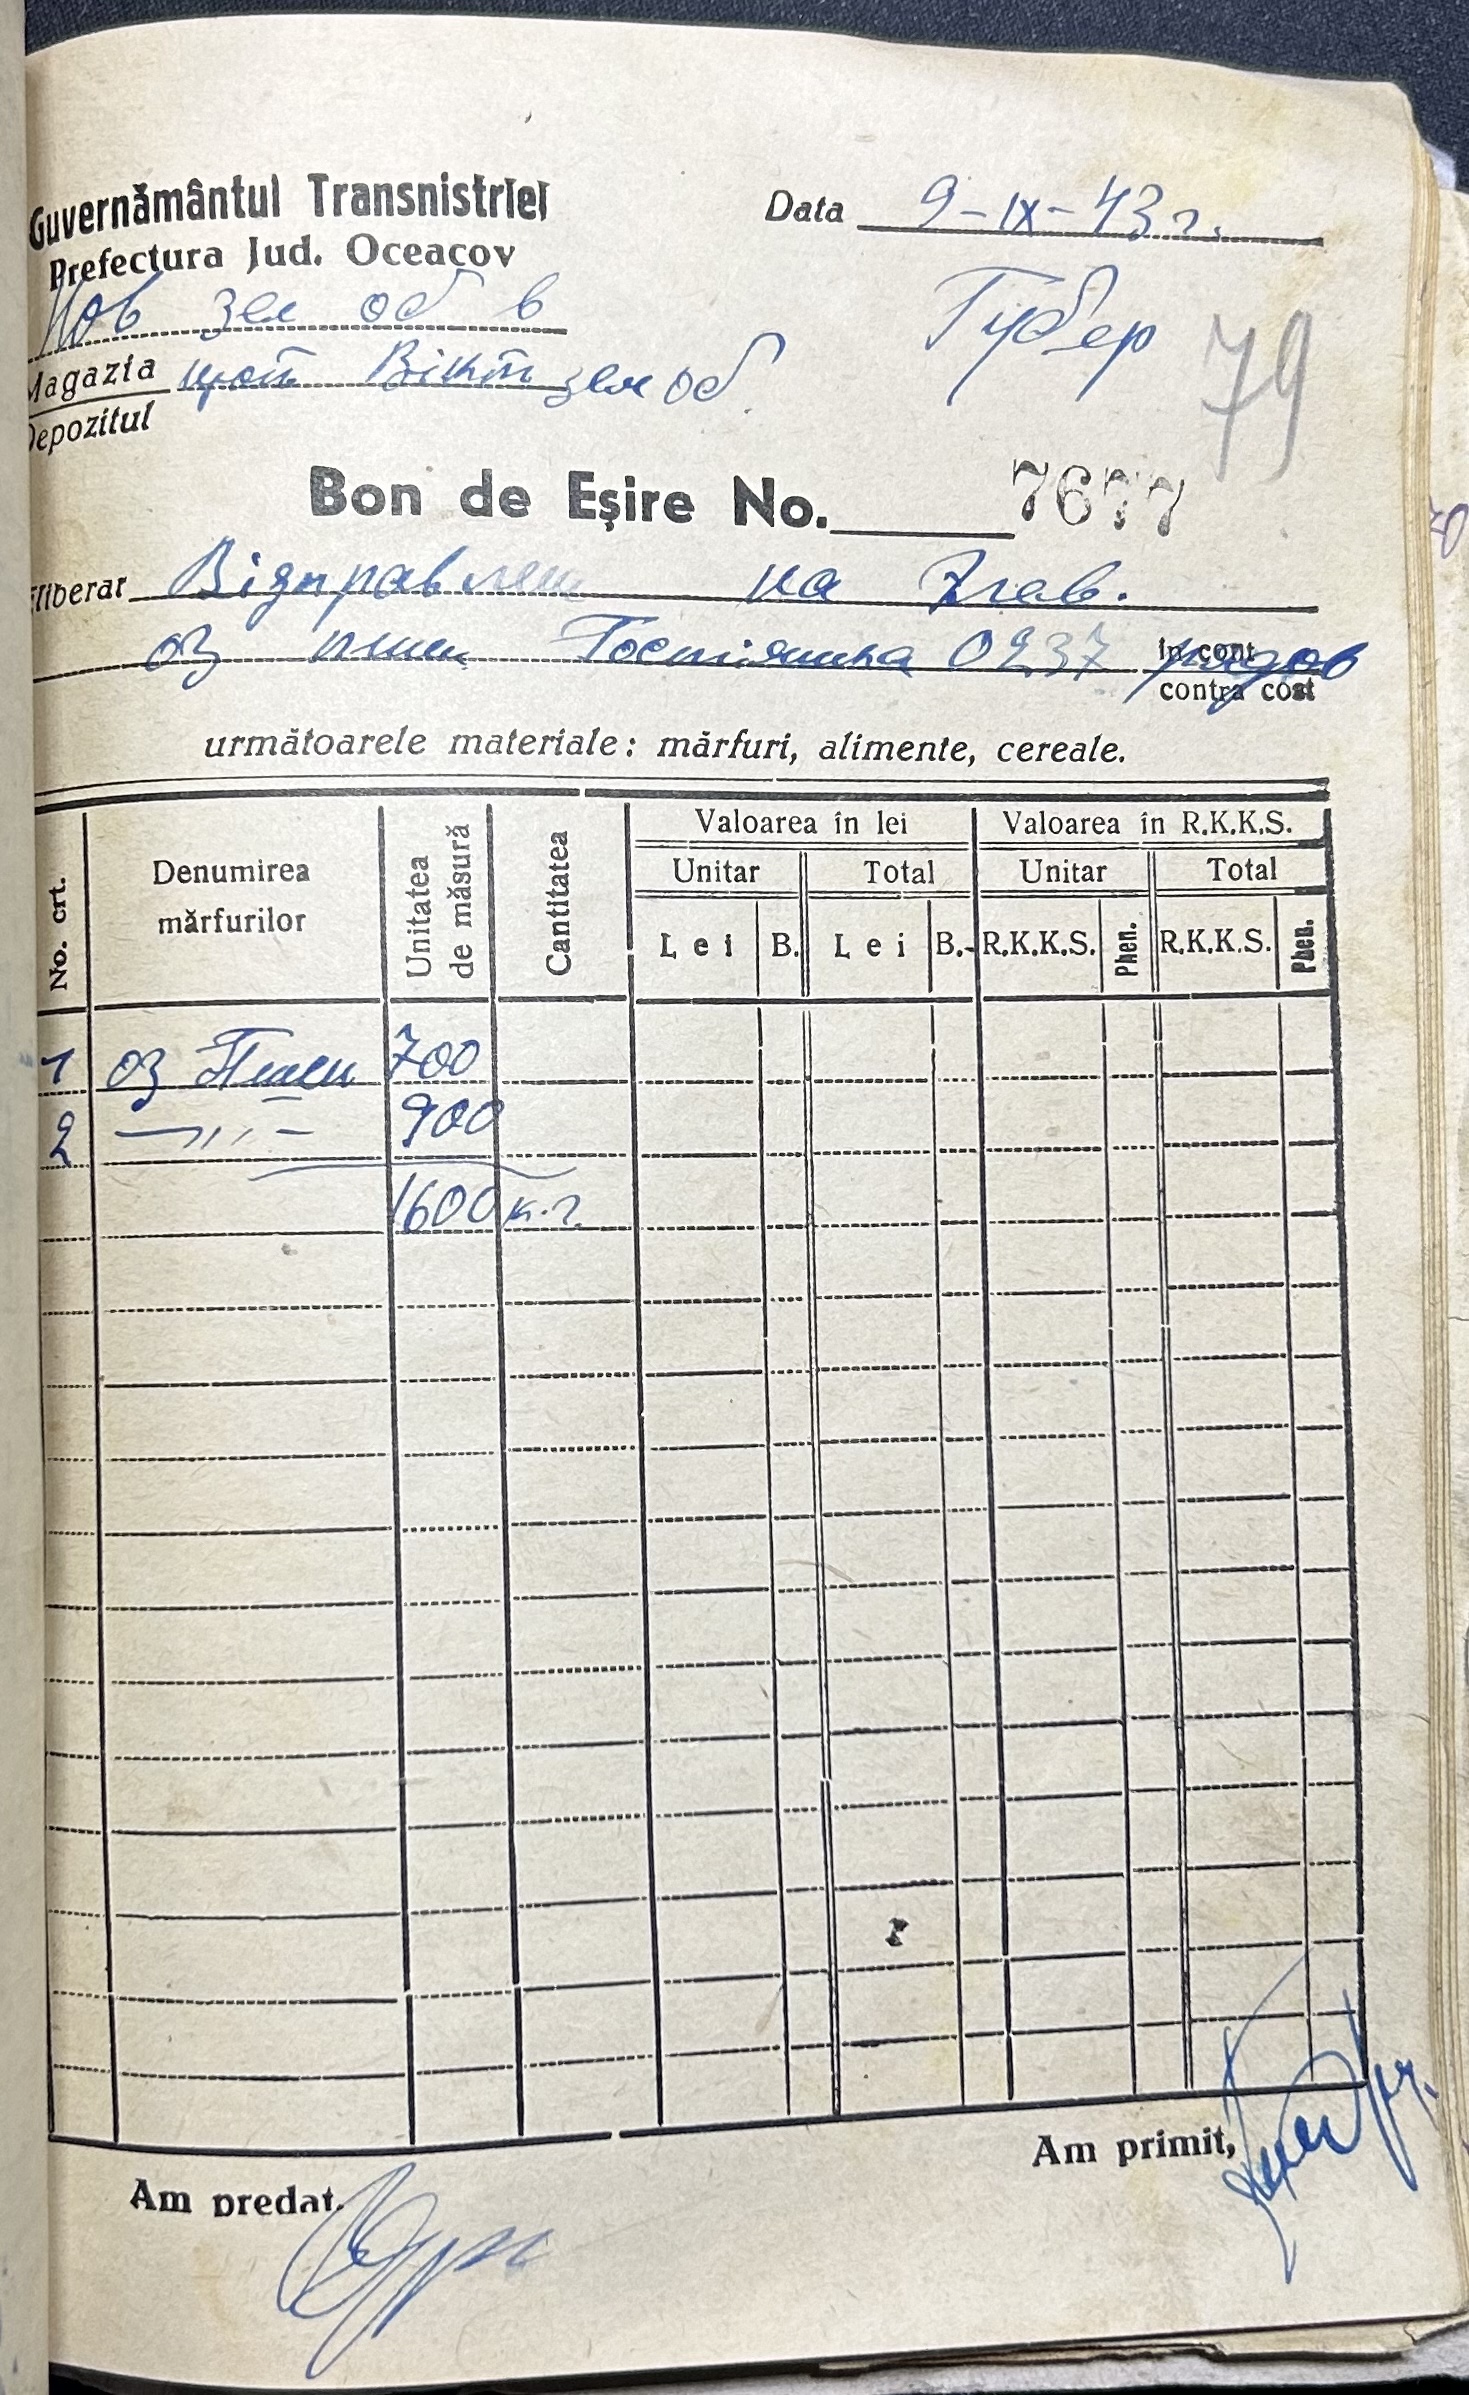 Guvernământul Transnistriei
Prefectura Jud. Oceacov
Data 9-IX-43 г.
зем об в
Губер
79
Magazia
Depozitul
зем об.
Bon de Eşire No. 7677
Eliberat на Глав.
оз пшен 0237
in cont
contra cost
următoarele materiale: mărfuri, alimente, cereale.
No. crt.
Denumirea mărfurilor
Unitatea de măsură
Cantitatea
Valoarea în lei
Valoarea în R.K.K.S.
Unitar Total Unitar Total
Lei B. Lei B. R.K.K.S. Phen. R.K.K.S. Phen.
1 оз Пшен 700
2 —„— 900
1600 к.г.
Am predat.
Am primit,